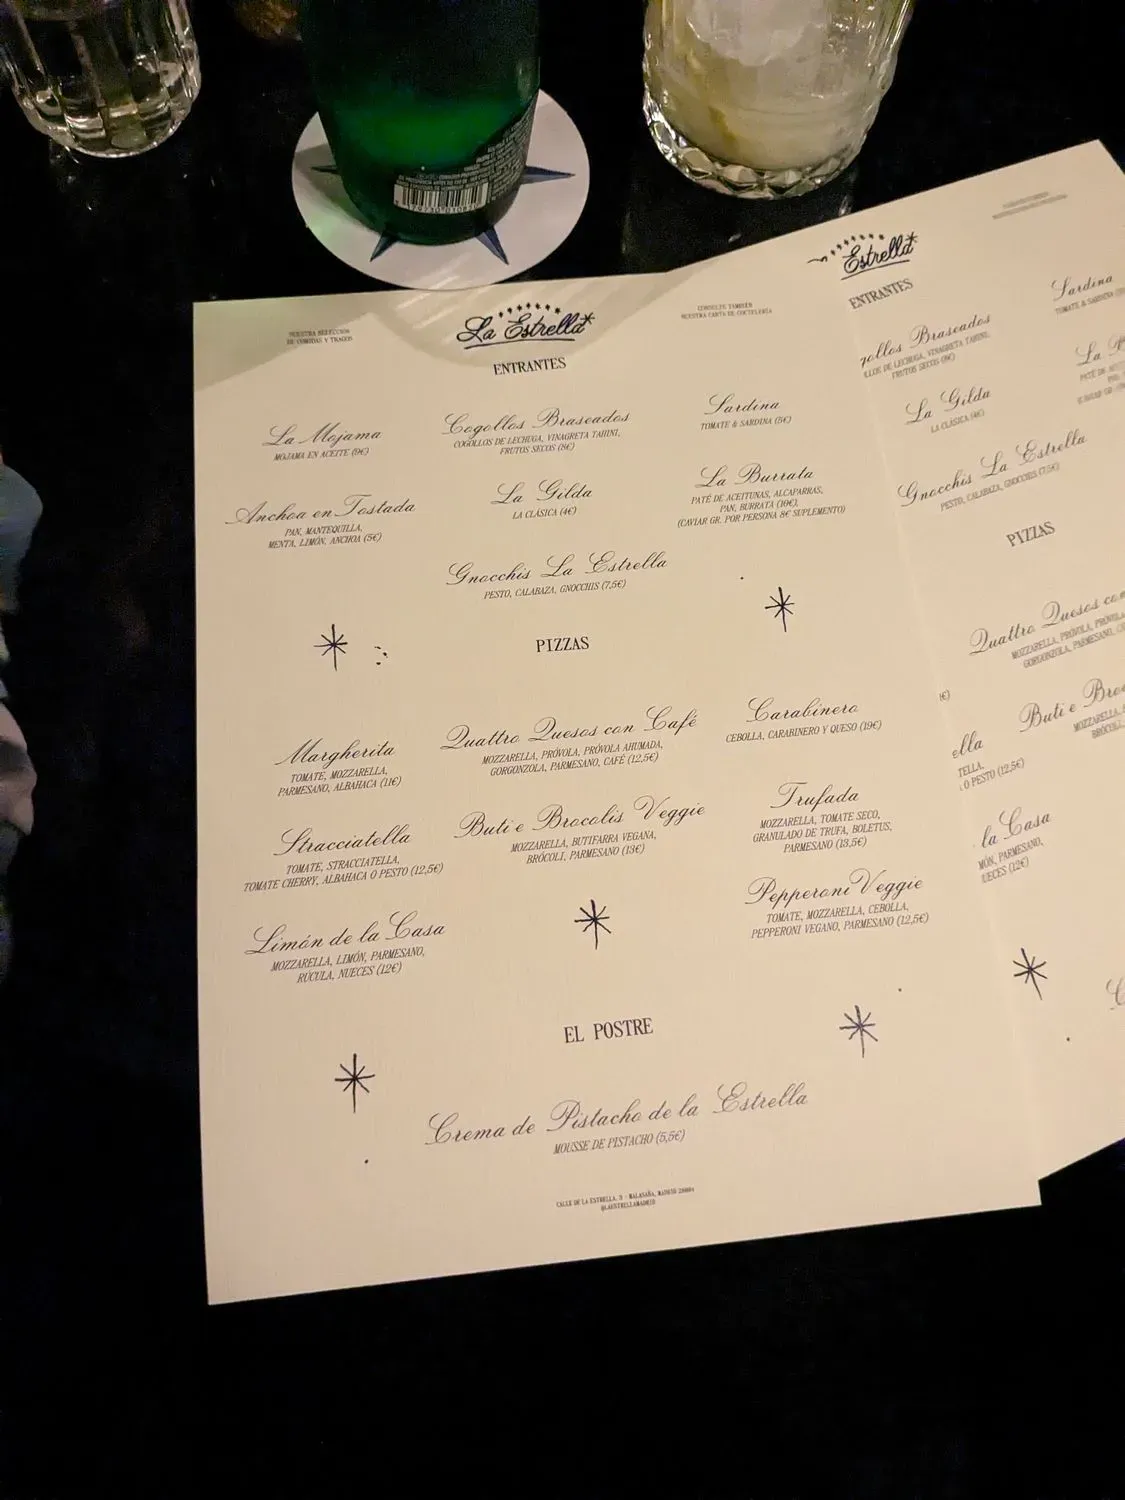 NUESTRA SELECCIÓN
DE COMIDAS Y TRAGOS
La Estrella
CONSULTE TAMBIÉN
NUESTRA CARTA DE COCTELERÍA
ENTRANTES
La Mojama
MOJAMA EN ACEITE (9€)
Cogollos Braseados
COGOLLOS DE LECHUGA, VINAGRETA TAHINI,
FRUTOS SECOS (8€)
Sardina
TOMATE & SARDINA (5€)
Anchoa en Tostada
PAN, MANTEQUILLA,
MENTA, LIMÓN, ANCHOA (5€)
La Gilda
LA CLÁSICA (4€)
La Burrata
PATÉ DE ACEITUNAS, ALCAPARRAS,
PAN, BURRATA (10€),
(CAVIAR GR. POR PERSONA 8€ SUPLEMENTO)
Gnocchis La Estrella
PESTO, CALABAZA, GNOCCHIS (7,5€)
PIZZAS
Margherita
TOMATE, MOZZARELLA,
PARMESANO, ALBAHACA (11€)
Quattro Quesos con Café
MOZZARELLA, PRÓVOLA, PRÓVOLA AHUMADA,
GORGONZOLA, PARMESANO, CAFÉ (12,5€)
Carabinero
CEBOLLA, CARABINERO Y QUESO (19€)
Stracciatella
TOMATE, STRACCIATELLA,
TOMATE CHERRY, ALBAHACA O PESTO (12,5€)
Buti e Brocolis Veggie
MOZZARELLA, BUTIFARRA VEGANA,
BRÓCOLI, PARMESANO (13€)
Trufada
MOZZARELLA, TOMATE SECO,
GRANULADO DE TRUFA, BOLETUS,
PARMESANO (13,5€)
Limón de la Casa
MOZZARELLA, LIMÓN, PARMESANO,
RÚCULA, NUECES (12€)
Pepperoni Veggie
TOMATE, MOZZARELLA, CEBOLLA,
PEPPERONI VEGANO, PARMESANO (12,5€)
EL POSTRE
Crema de Pistacho de la Estrella
MOUSSE DE PISTACHO (5,5€)
CALLE DE LA ESTRELLA, 3 - MALASAÑA, MADRID
@LAESTRELLAMADRID
Estrella
ENTRANTES
gollos Braseados
LLOS DE LECHUGA, VINAGRETA TAHINI,
FRUTOS SECOS (8€)
Sardina
TOMATE & SARDINA
La Gilda
LA CLÁSICA (4€)
La
PATÉ DE
Gnocchis La Estrella
PESTO, CALABAZA, GNOCCHIS (7,5€)
PIZZAS
Quattro Quesos con
MOZZARELLA, PRÓVOLA, PRÓVOLA
GORGONZOLA, PARMESANO,
€)
Buti e Bro
MOZZARELLA,
BRÓCOLI,
ella
TELLA,
O PESTO (12,5€)
la Casa
MÓN, PARMESANO,
UECES (12€)